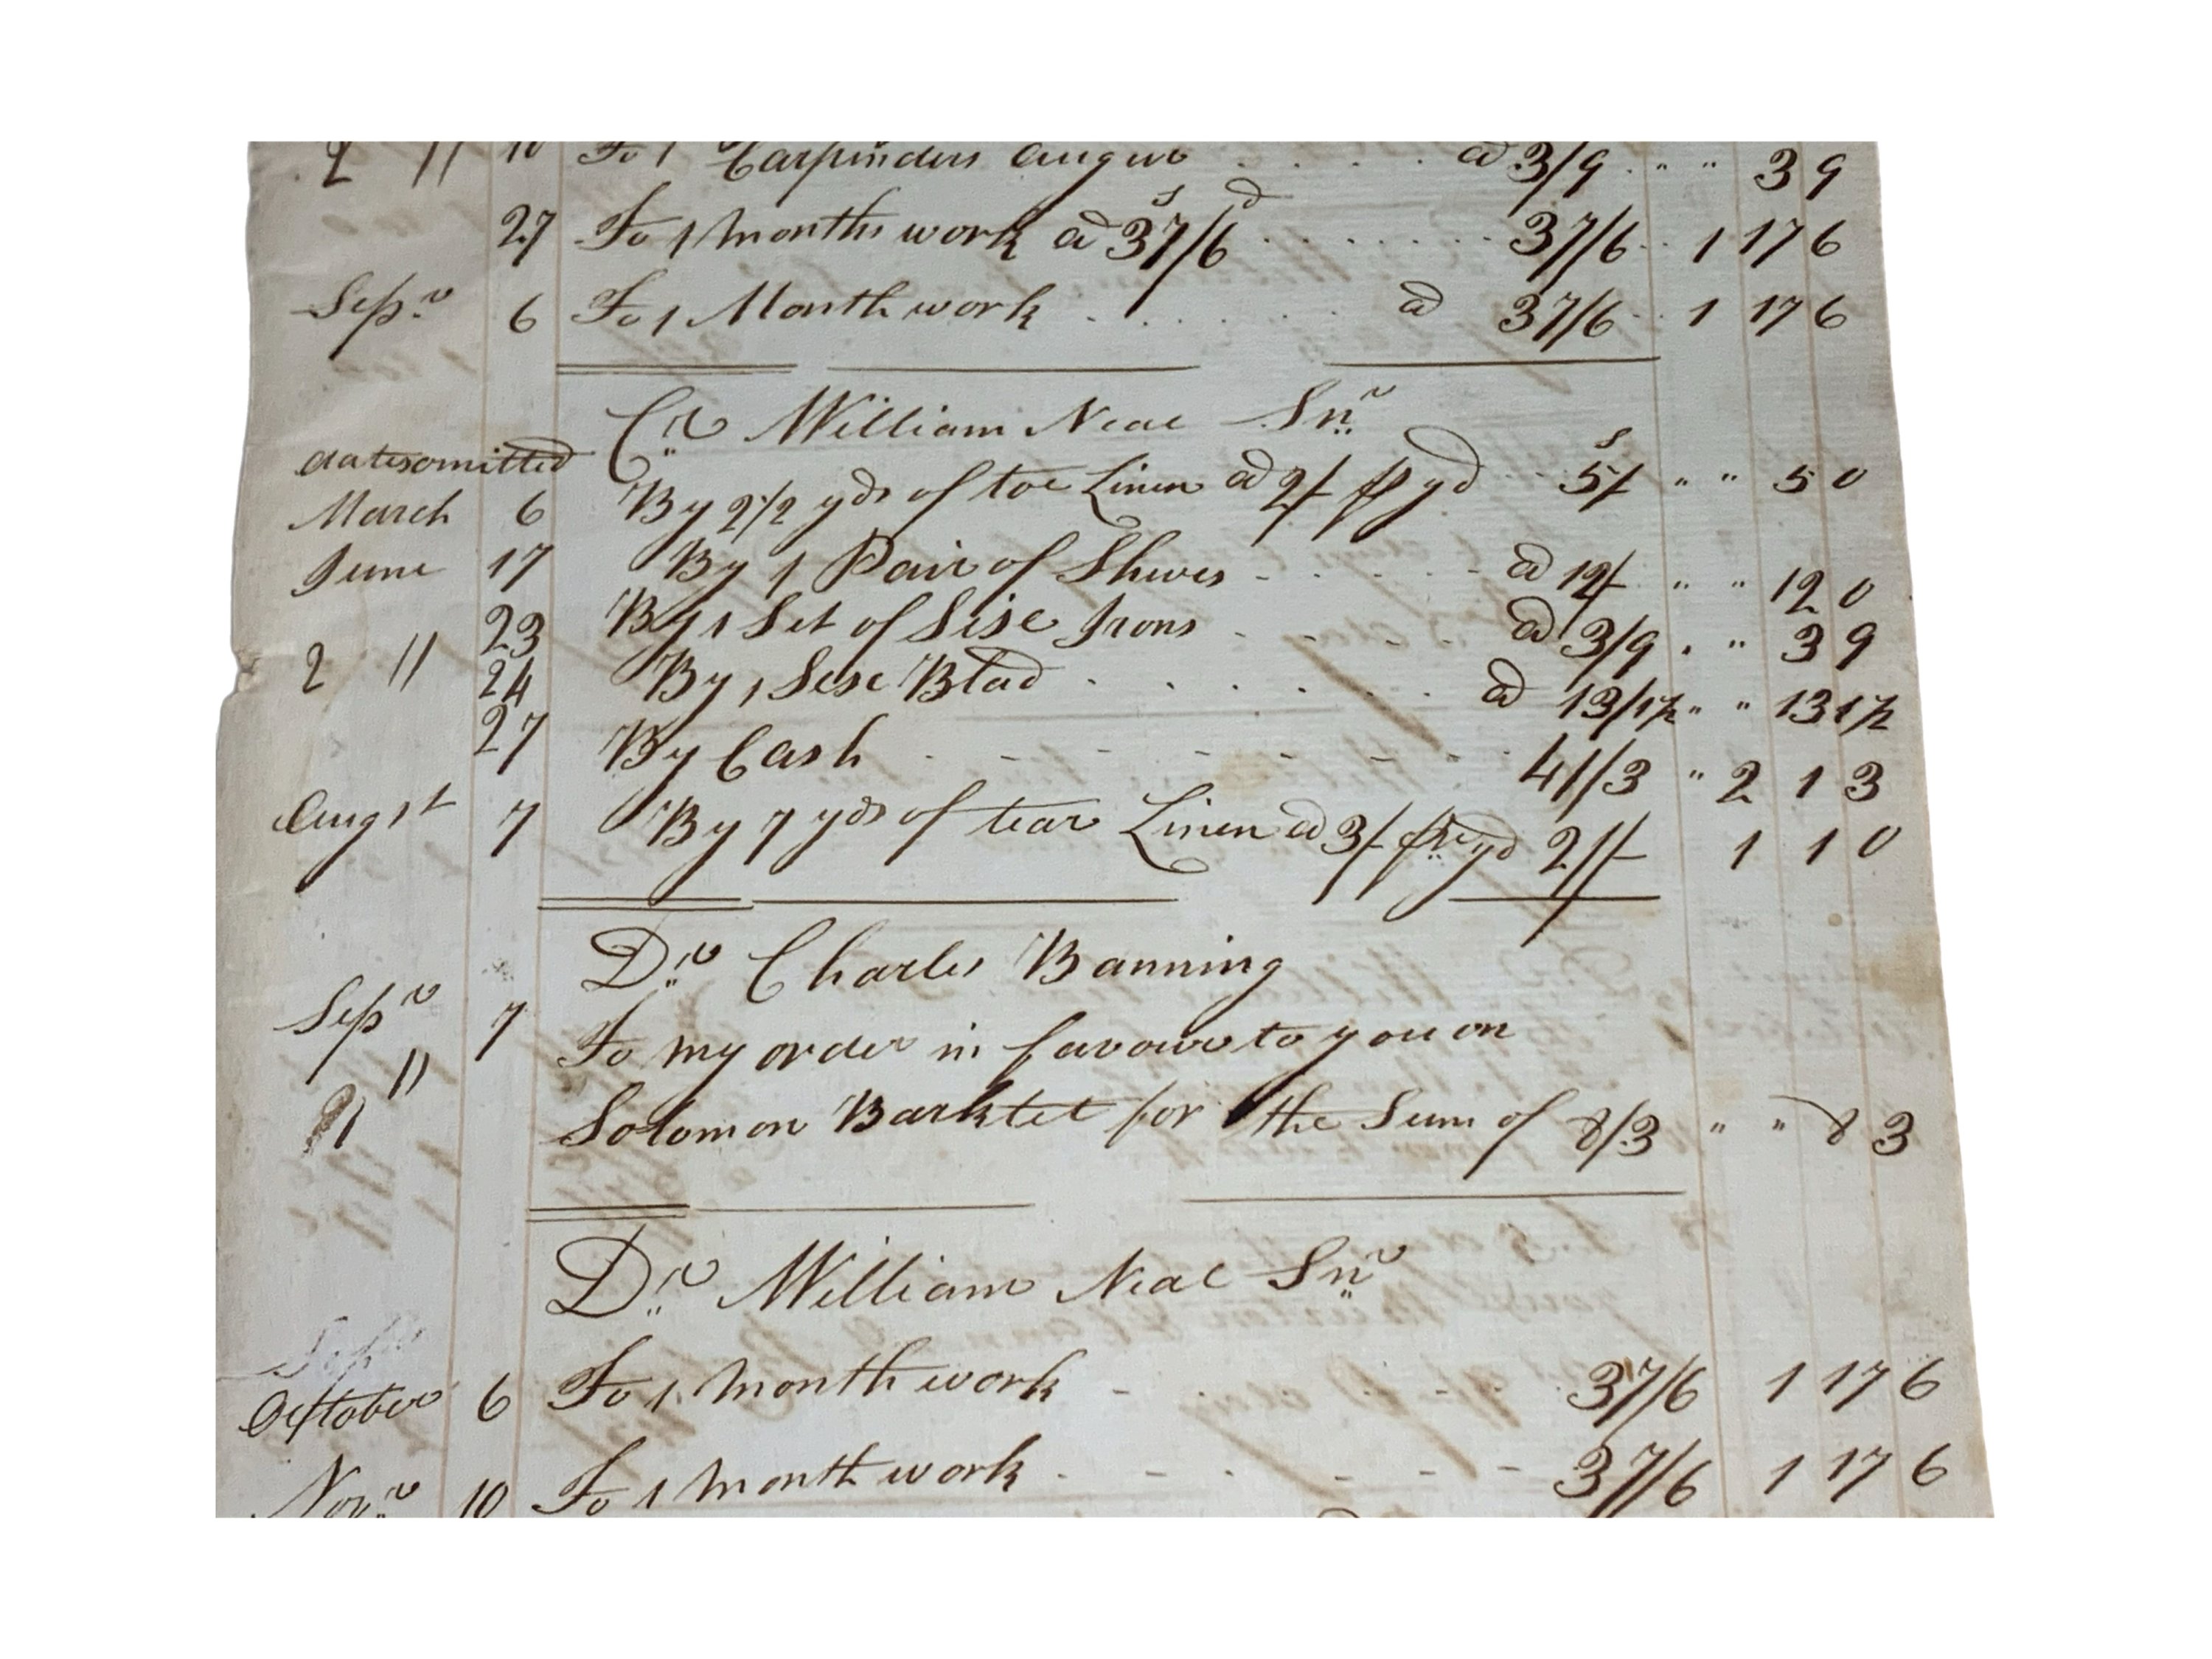 2 " 10 To 1 Carpinders augur . . . . @ 3/9 . " " 3 9
27 To 1 Months work @ 37/6 . . . . . . . 37/6 . . 1 17 6
Sepr 6 To 1 Month work . . . . . . @ 37/6 . . 1 17 6
Cr William Neal Snr
datesomitted
March 6 By 2 1/2 yds of toe Linen @ 2/ pr yd . . 5/ " " 5 0
June 17 By 1 Pair of Shews - - - - - @ 12/ " " 12 0
23 By 1 Set of Sise Irons - - - - @ 3/9 . " 3 9
2 " 24 By 1 Sese Blad . . . . . . @ 13/1 1/2 " " 13 1 1/2
27 By Cash . - - - - - - . 41/3 " 2 1 3
Augst 7 By 7 yds of tear Linen @ 3/ pr yd 21/ 1 1 0
Dr Charles Banning
Sepr 7 To my order in favour to you on
" Solomon Barktet for the Sum of 8/3 " " 8 3
Dr William Neal Snr
Sepr
October 6 To 1 Month work - - - - 37/6 1 17 6
Novr 10 To 1 Month work . - . - - - 37/6 1 17 6